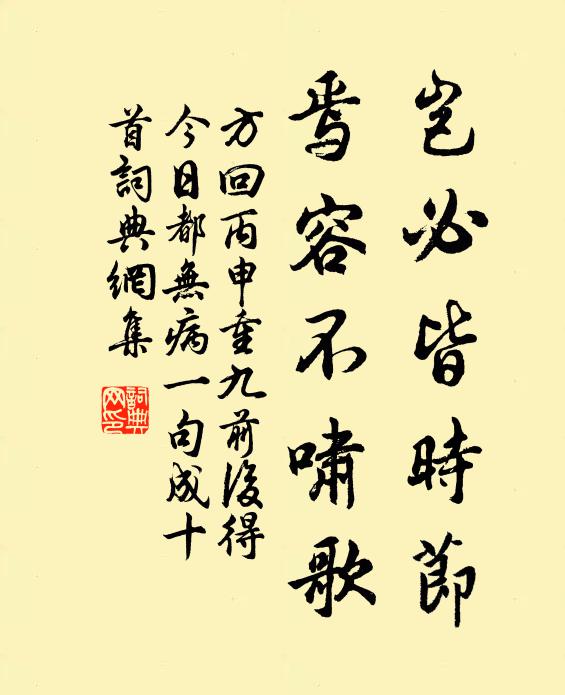 豈必皆時節
焉容不嘯歌
方回丙申重九前後得
今日都無病一句成十
首詞典網集
詞典
网印